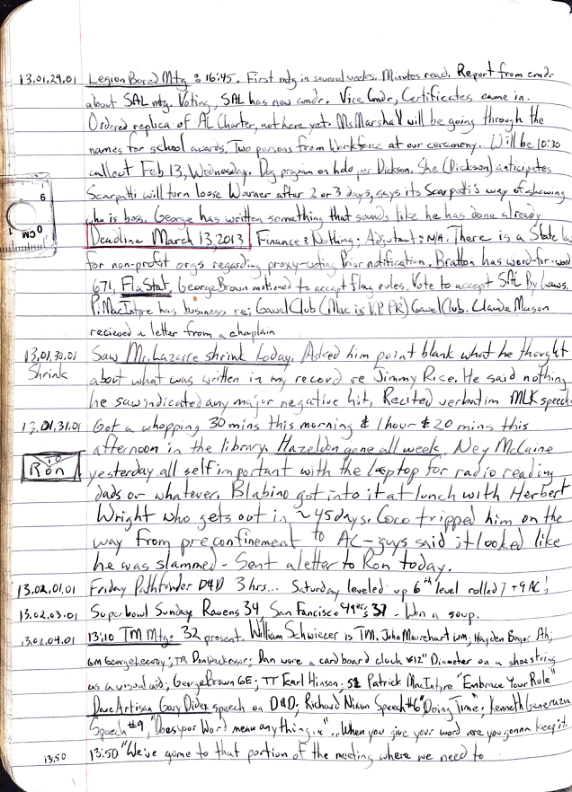 13.01.29.01 Legion Bored Mtg: 16:45. First mtg in several weeks. Minutes read. Report from cmdr
about SAL mtg. Voting, SAL has new cmdr. Vice Cmdr, Certificates came in.
Ordered replica of AL Charter, not here yet. Ms Marshall will be going through the
names for school awards. Two persons from Workforce at our ceremony. Will be 10:30
callout Feb 13, Wednesday. Dog program on hold per Dickson. She (Dickson) anticipates
Scarpatti will turn loose Warner after 2 or 3 days, says its Scarpatti's way of showing
who is boss. George has written something that sounds like he has done already
Deadline March 13, 2013 Finance: Nothing: Adjutant: N/A. There is a State law
for non-profit orgs regarding proxy-voting Prior notification. Bratton has word-for-word
671, Fla Stat. George Brown motioned to accept flag rules. Vote to accept SAL By Laws.
P. MacIntyre has business re: Gavel Club (Mac is V.P. PR) Gavel Club. Claude Mason
recieved a letter from a chaplain
13.01.30.01 Saw Mr. Lazarre shrink today. Asked him point blank what he thought
Shrink about what was written in my record re Jimmy Rice. He said nothing
he saw indicated any major negative hit. Recited verbatim MLK speech
13.01.31.01 Got a whopping 30 mins this morning & 1 hour & 20 mins this
afternoon in the library. Hazeldon gone all week. Ney McCaine
TO Ron yesterday all self important with the laptop for radio reading
dads or whatever. Blabino got into it at lunch with Herbert
Wright who gets out in ~45 days. Coco tripped him on the
way from preconfinement to AC - guys said it looked like
he was slammed - Sent a letter to Ron today.
13.02.01.01 Friday Pathfinder D&D 3 hrs... Saturday leveled up 6th level rolled 7 +9 AC!
13.02.03.01 Superbowl Sunday Ravens 34, San Fancisco 49er's 37 - Won a soup.
13.02.04.01 13:10 TM Mtg: 32 present. William Schwiezer is TM. John Wm; Hayden Ah;
GM George; TR Don; Dan wore a cardboard clock ≈12" Diameter on a shoestring
as a visual aid; George Brown GE; TT Karl Hinson; S1 Patrick MacIntyre "Embrace Your Role"
Dave Artisan Gary Dider speech on D&D; Richard Nixon Speech #6 "Doing Time"; Kenneth
Speech #9, "Does your Word mean anything..." ..When you give your word are you gonna keep it.
13.50 13:50 "We've come to that portion of the meeting where we need to